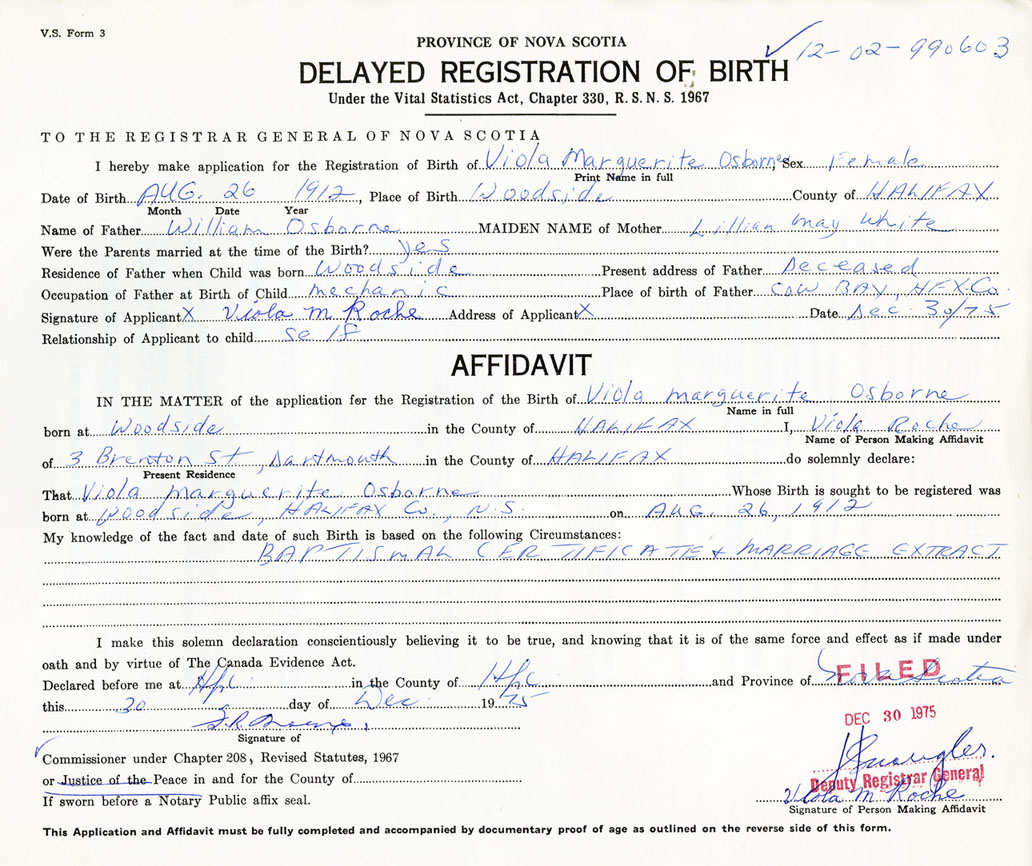 V.S. Form 3
12-02-990603
PROVINCE OF NOVA SCOTIA
DELAYED REGISTRATION OF BIRTH
Under the Vital Statistics Act, Chapter 330, R.S.N.S. 1967
TO THE REGISTRAR GENERAL OF NOVA SCOTIA
I hereby make application for the Registration of Birth of Viola Marguerite Osborne, Sex Female
Print Name in full
Date of Birth AUG. 26 1912, Place of Birth Woodside County of HALIFAX
Month Date Year
Name of Father William Osborne MAIDEN NAME of Mother Lillian May White
Were the Parents married at the time of the Birth? yes
Residence of Father when Child was born Woodside Present address of Father Deceased
Occupation of Father at Birth of Child mechanic Place of birth of Father COW BAY, HFX.Co.
Signature of Applicant X Viola M Roche Address of Applicant X Date Dec. 30/75
Relationship of Applicant to child self
AFFIDAVIT
IN THE MATTER of the application for the Registration of the Birth of Viola marguerite Osborne
Name in full
born at Woodside in the County of HALIFAX I, Viola Roche
Name of Person Making Affidavit
of 3 Brenton St, Dartmouth in the County of HALIFAX do solemnly declare:
Present Residence
That Viola marguerite Osborne Whose Birth is sought to be registered was
born at Woodside, HALIFAX Co., N.S. on AUG. 26, 1912
My knowledge of the fact and date of such Birth is based on the following Circumstances:
BAPTISMAL CERTIFICATE & MARRIAGE EXTRACT
I make this solemn declaration conscientiously believing it to be true, and knowing that it is of the same force and effect as if made under
oath and by virtue of The Canada Evidence Act.
Declared before me at Hfx in the County of Hfx and Province of Nova Scotia
FILED
this 30 day of Dec 1975
DEC 30 1975
Signature of
Commissioner under Chapter 208, Revised Statutes, 1967
or Justice of the Peace in and for the County of
Deputy Registrar General
Viola M Roche
If sworn before a Notary Public affix seal.
Signature of Person Making Affidavit
This Application and Affidavit must be fully completed and accompanied by documentary proof of age as outlined on the reverse side of this form.